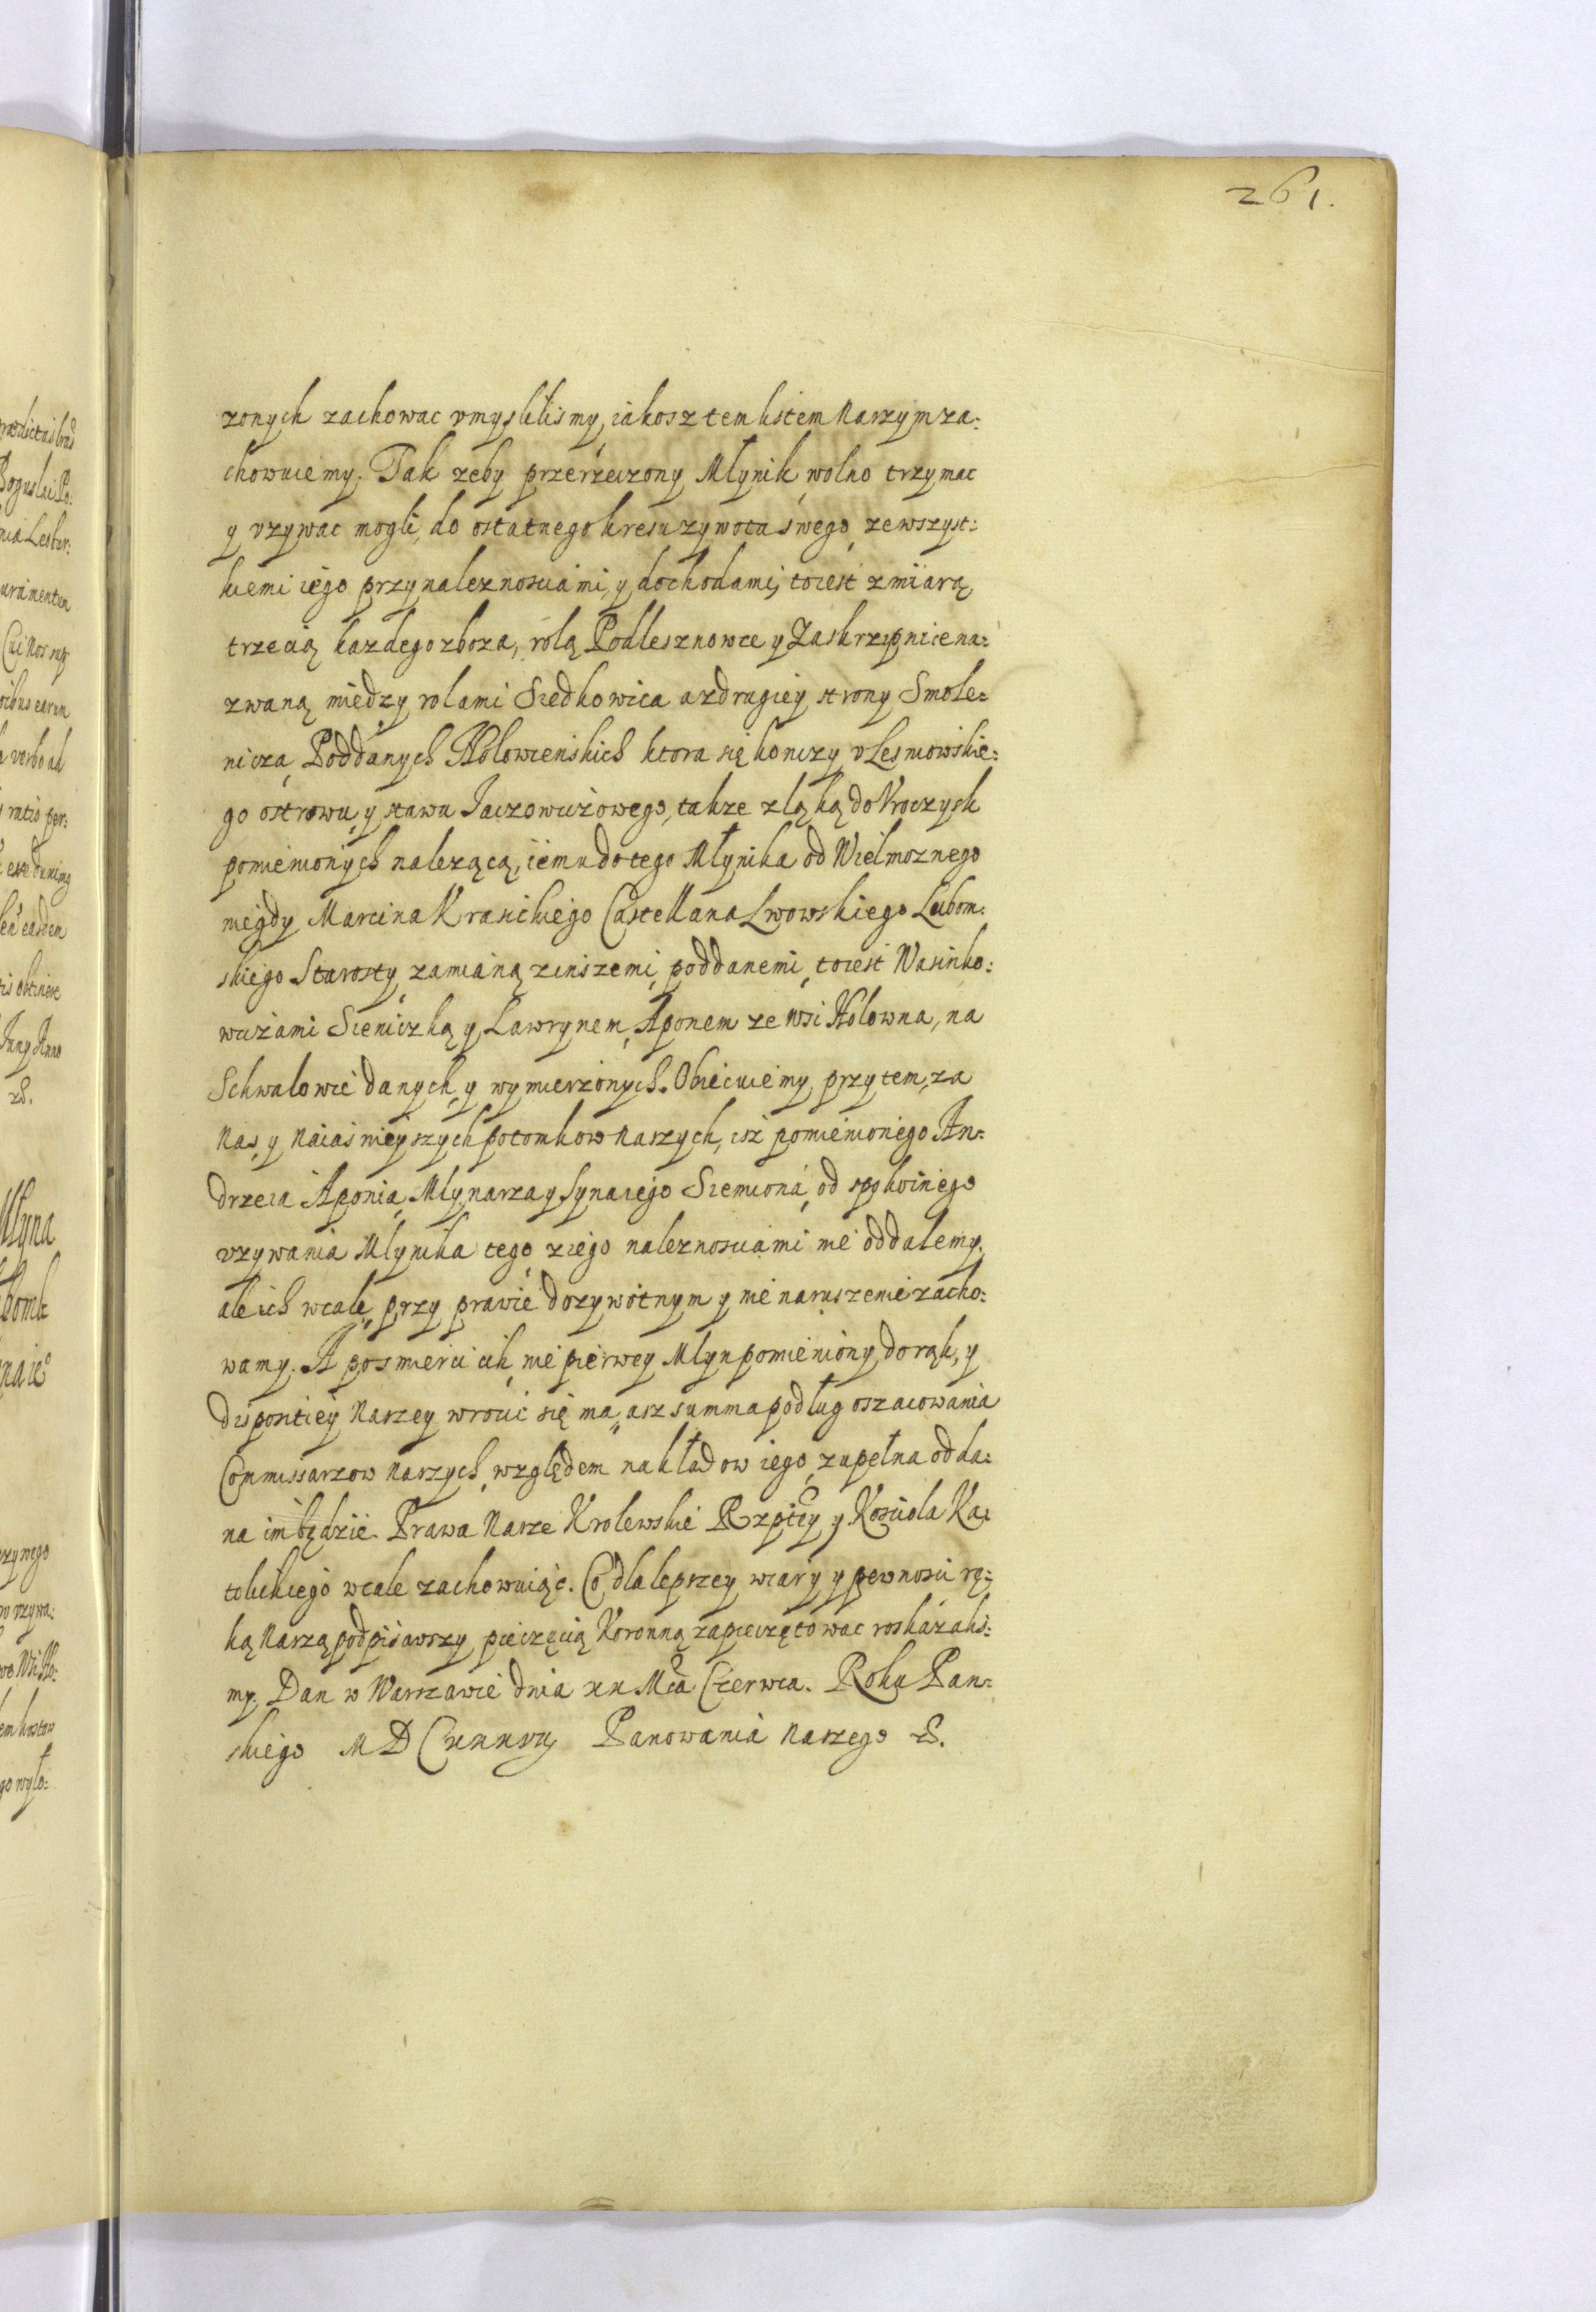 261.
zonych zachowac vmyslilismy, iakosz tem listem Naszym za:
chowuiemy. Tak zeby przerzeczony Młynik, wolno trzymac
y vzywac mogli, do ostatnego kresu zywota swego, ze wszyst:
kiemi iego przynaleznosciami, y dochodami, toiest z miarą
trzecią kazdego zboza, rolą Podlesznowce y Zaskrzypnice na:
zwaną między rolami Siedkowica a z drugiey strony Smole:
nicza, Poddanych Holowienskich ktora się konczy v Lesniowskie:
go ostrowu, y stawu Iaczowiczowego, takze z łąką do Vroczysk
pomienionych nalezącą, iemu do tego Młynika od Wielmoznego
niegdy Marcina Krasickiego Castellana Lwowskiego Lubom:
skiego Starosty, zamianą z inszemi, poddanemi, toiest Wasinko:
wiczami Sieniczką y Lawrynem, Aponem ze Wsi Holowna, na
Schwalowie danych, y wymierzonych. Obiecuiemy, przytem, za
Nas, y Naiasnieyszych potomkow Naszych, isz pomienionego An:
drzeia Aponia, Mlynarza y Syna iego Siemiona, od spokoinego
vzywania Mlynika tego, z iego naleznosciami nie oddalemy,
ale ich wcale, przy prawie dozywotnym y nie naruszenie zacho:
wamy. A po smierci ich, nie pierwey Mlyn pomieniony, do rąk, y
dispositiey Naszey wrocic się ma, asz summa podług oszacowania
Commissarzow Naszych, względem nakładow iego, zupełna odda:
na im będzie. Prawa Nasze Krolewskie Rzptey y Kosciola Ka:
tolickiego wcale zachowuiąc. Co dla lepszey wiary y pewnosci rę:
ką Naszą podpisawszy, pieczęcią Koronną zapieczętowac roskazalis:
my. Dan w Warszawie dnia xx Mca Czerwca. Roku Pan:
skiego MDCxxxvij Panowania Naszego &.